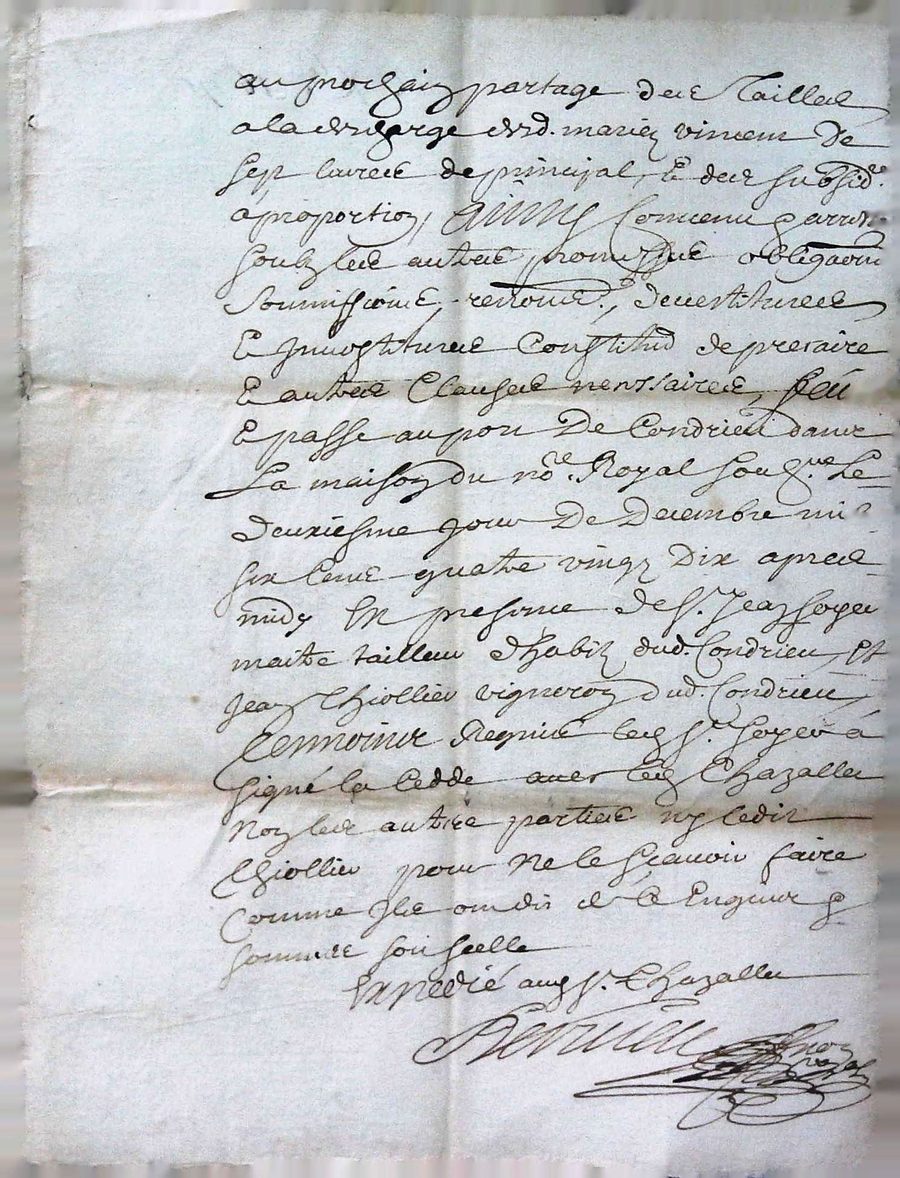 au prochain partage des Tailles
a la descharge dud. mariez vincent De
sept livres de principal, & des subsid.
a proportion, Ainsy Convenu
soubz les autres promesses obligaons
soumissions, renonc. devestitures
& Investitures Constitud de precaire
& autres Clauses necessaires, fait
& passé au port De Condrieu dans
La maison du no.re Royal soug.ne Le
deuxiesme jour De Decembre mil
six cens quatre vingz Dix apres
midy En presence de s.r Jean soyer
maitre tailleur d'habitz dud. Condrieu, Et
Jean Chiollier vigneron dud. Condrieu,
Tesmoins Requis led s.r soyer à
signé la cedde avec led Chazaller
Non les autre parties ny ledit
Chiollier pour ne le sçavoir faire
Comme Ils ont dit de ce Enquis &
sommes soit scelle
Expedié aud s.r Chazaller